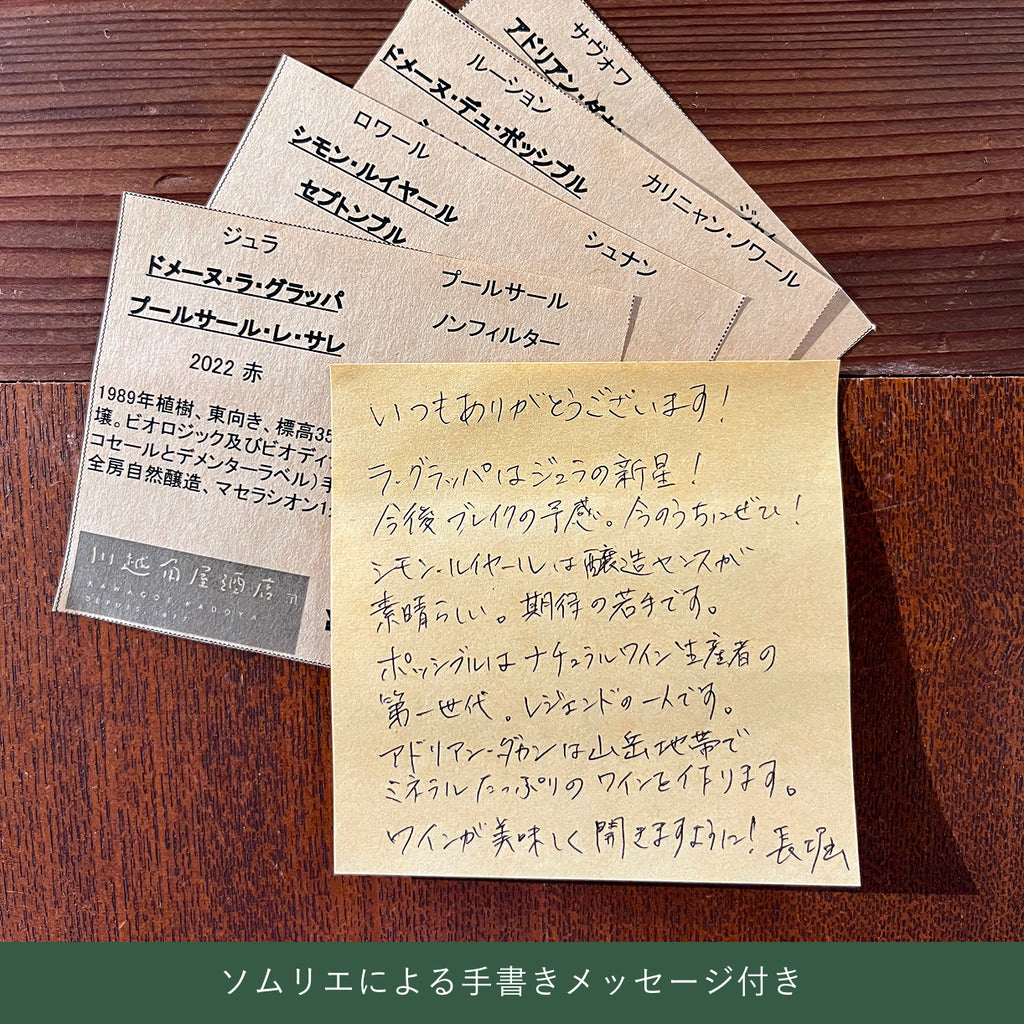 サヴォワ
アドリアン・ダカン
ルーション
ドメーヌ・デュ・ポッシブル
カリニャン・ノワール
ロワール
シモン・ルイヤール
セプトンブル
シュナン
ジュラ
ドメーヌ・ラ・グラッパ
プールサール・レ・サレ
プールサール
ノンフィルター
2022 赤
1989年植樹、東向き、標高35
壌。ビオロジック及びビオディ
コセールとデメンターラベル）手
全房自然醸造、マセラシオン1
川越角屋酒店
KAWAGOE KADOYA
DEPUIS 1877
いつもありがとうございます！
ラ・グラッパはジュラの新星！
今後ブレイクの予感。今のうちにぜひ！
シモン・ルイヤールは醸造センスが
素晴らしい。期待の若手です。
ポッシブルはナチュラルワイン生産者の
第一世代。レジェンドの一人です。
アドリアン・ダカンは山岳地帯で
ミネラルたっぷりのワインを作ります。
ワインが美味しく開きますように！ 長堀
ソムリエによる手書きメッセージ付き